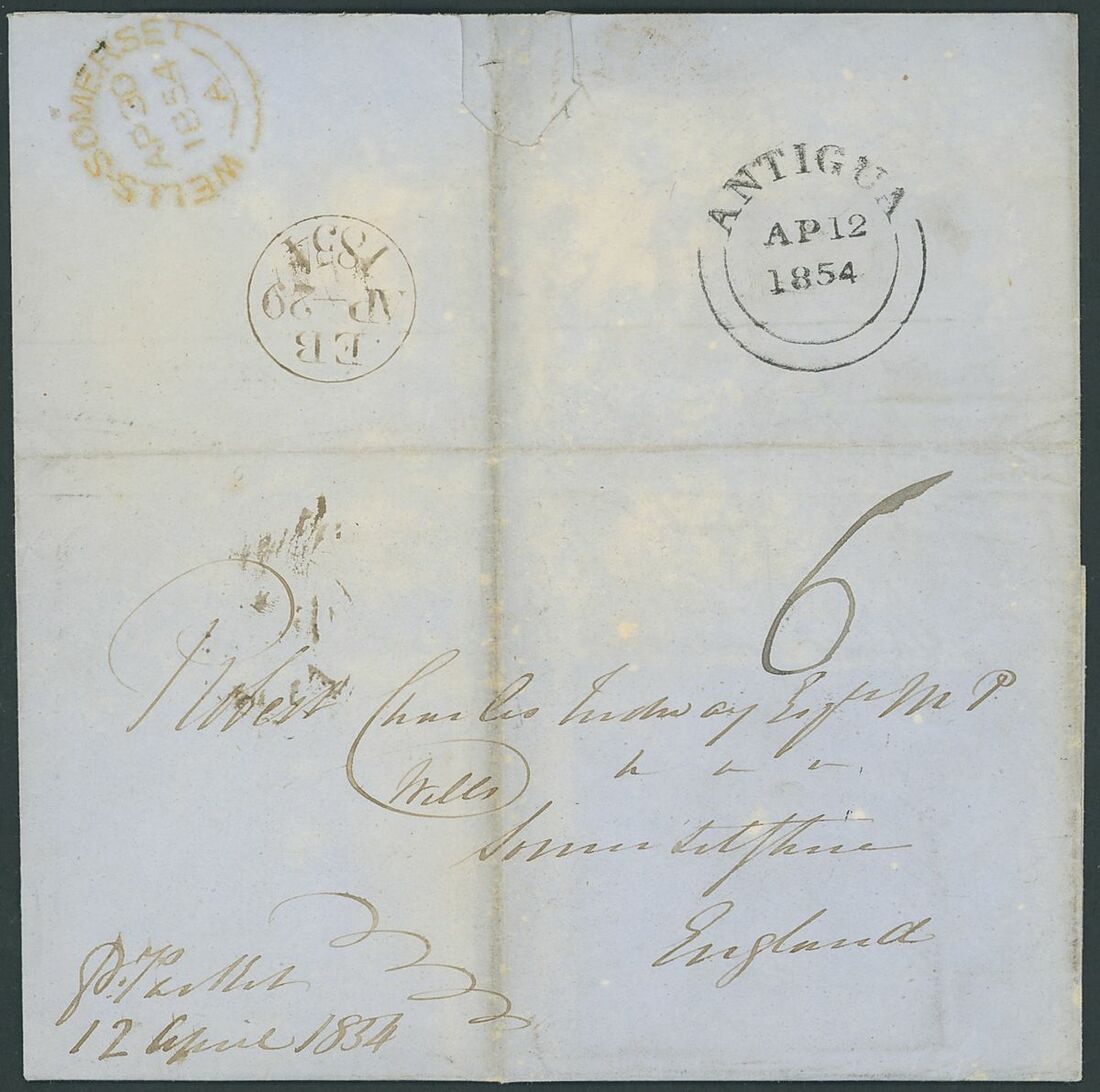 WELLS SOMERSET
AP 30
1854
A
ANTIGUA
AP 12
1854
EB
AP-29
1854
6
Robert Charles Tudway Esqre M P
Wells
Somersetshire
England
pr. Packet
12 April 1854